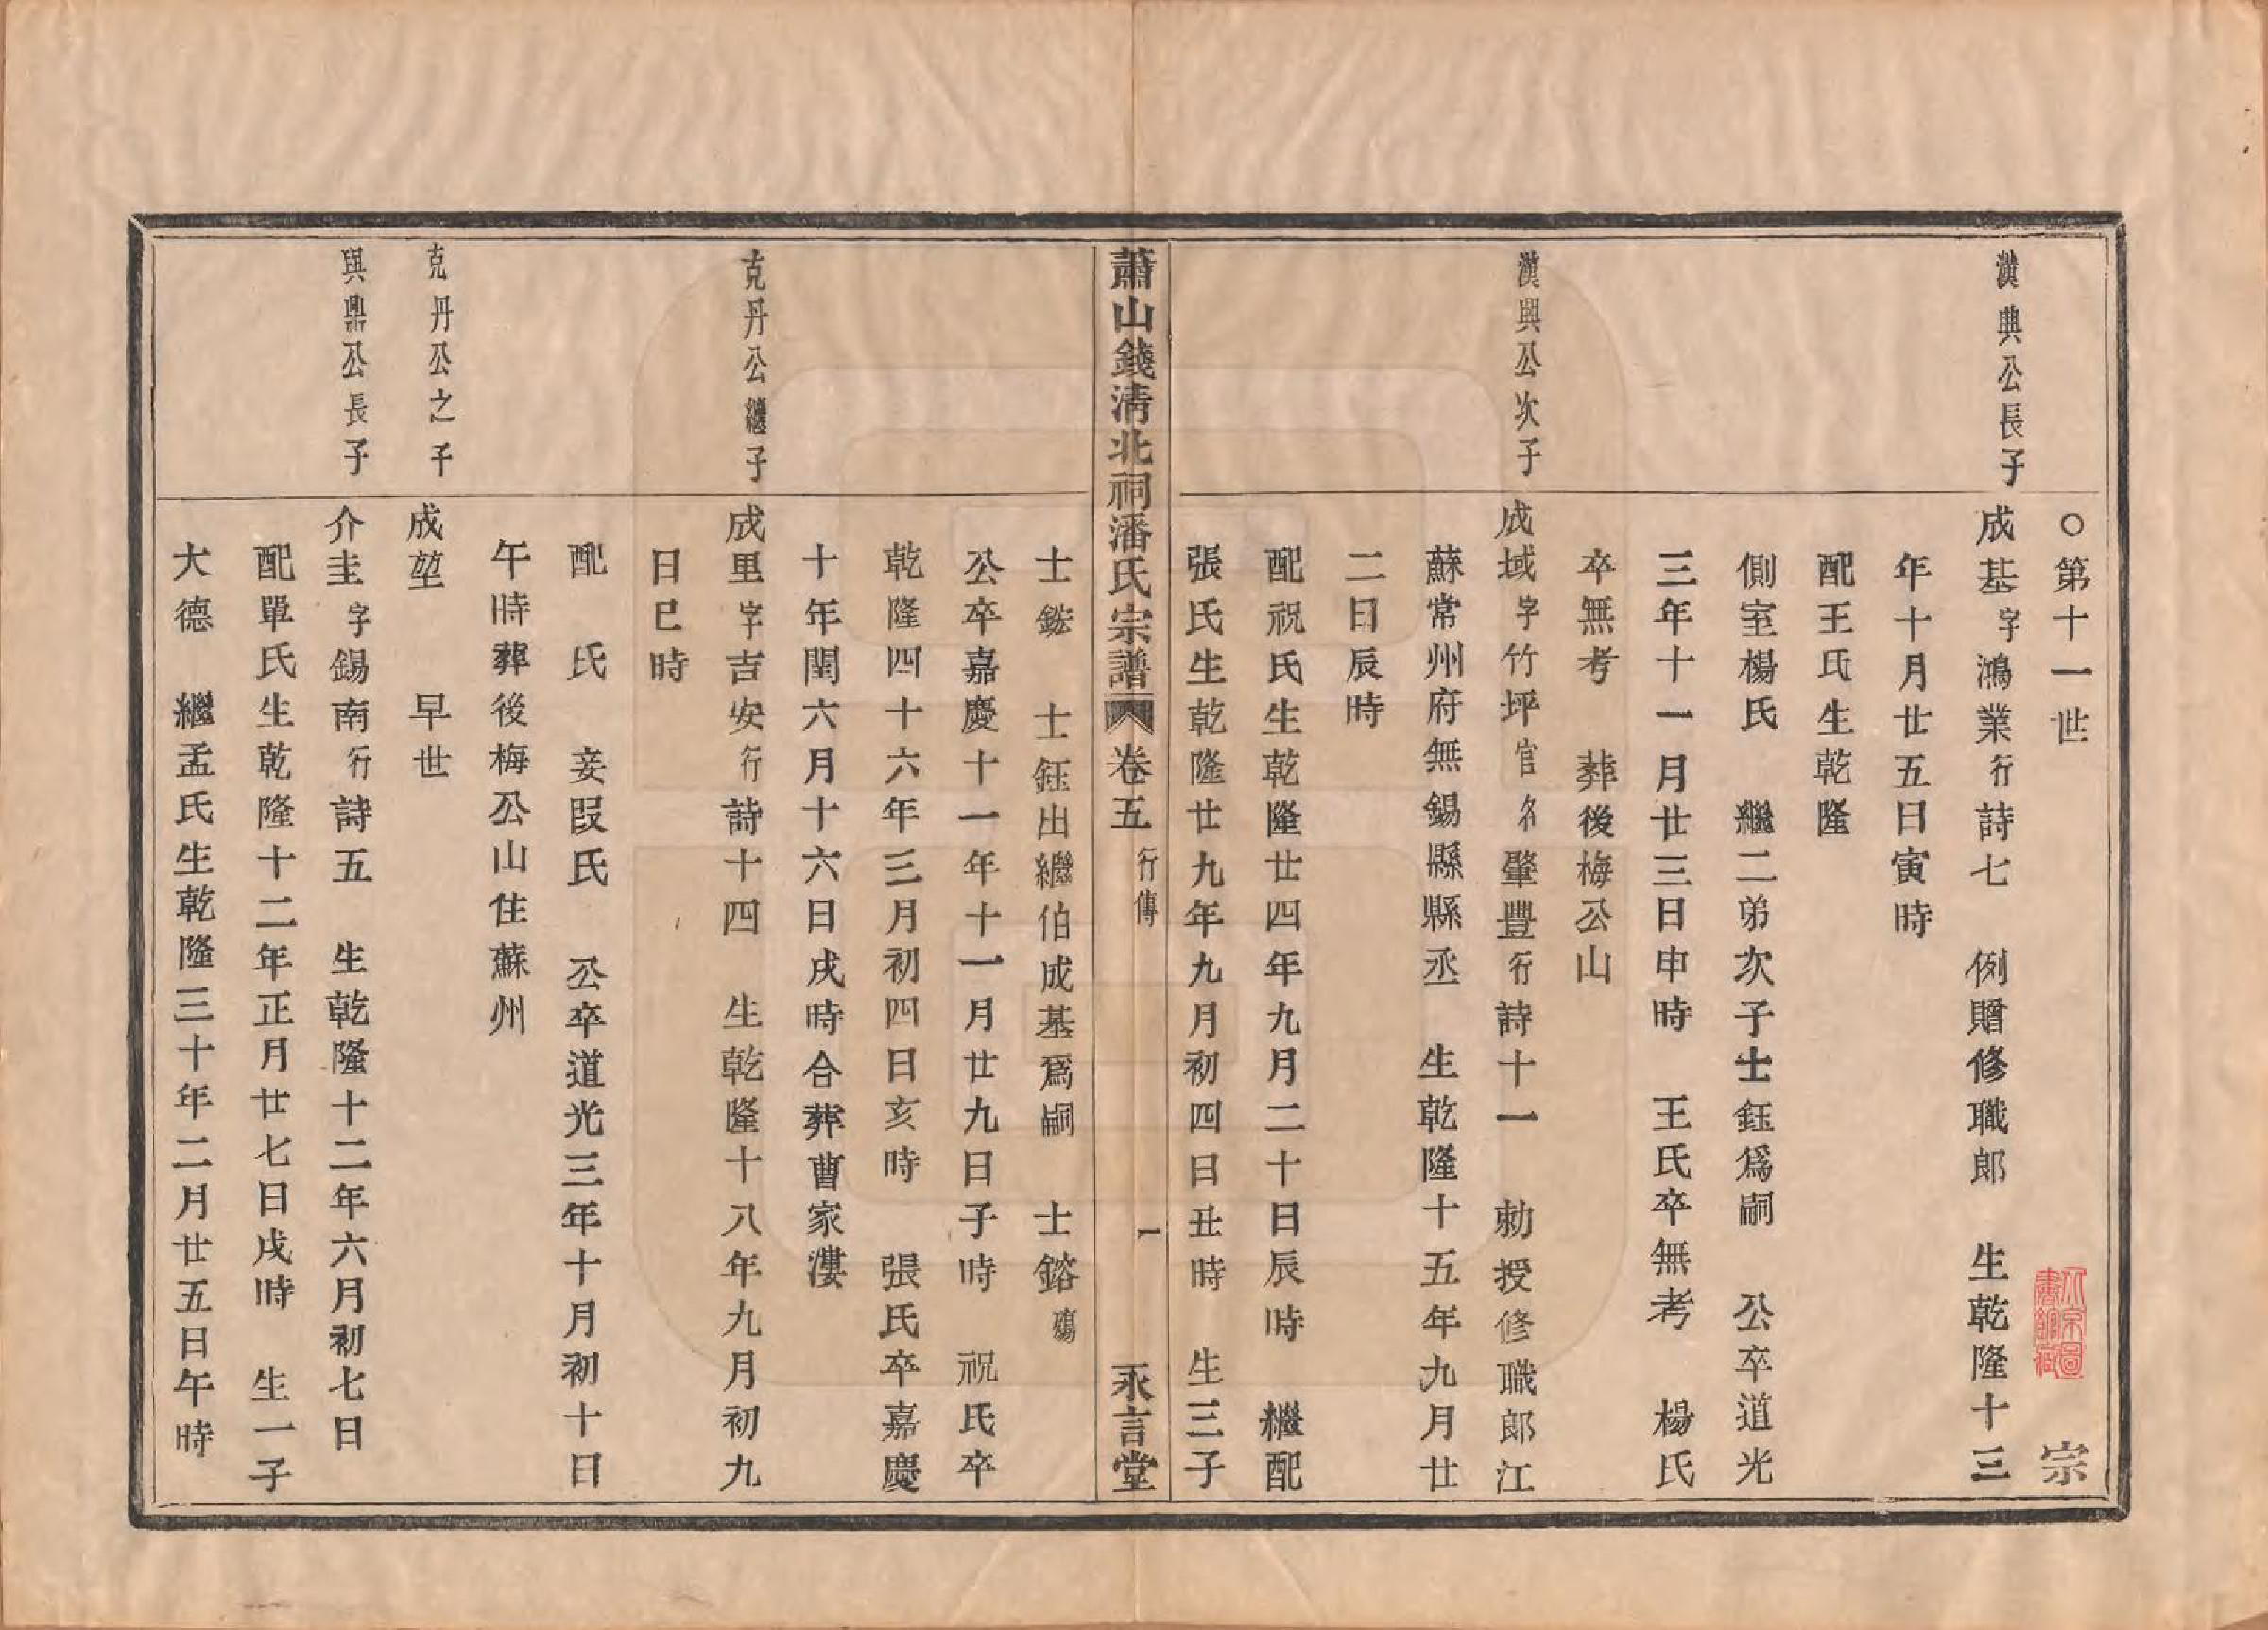 ○第十一世　宗
人宗圖
書館藏
漢興公長子
成基字鴻業行詩七　例贈修職郎　生乾隆十三
年十月廿五日寅時
配王氏生乾隆
側室楊氏　繼二弟次子士鈺爲嗣　公卒道光
三年十一月廿三日申時　王氏卒無考　楊氏
卒無考　葬後梅公山
漢興公次子
成域字竹坪官名肇豐行詩十一　勅授修職郎江
蘇常州府無錫縣縣丞　生乾隆十五年九月廿
二日辰時
配祝氏生乾隆廿四年九月二十日辰時　繼配
張氏生乾隆廿九年九月初四日丑時　生三子
蕭山錢清北祠潘氏宗譜　卷五　行傳　一　永言堂
士鍙　士鈺出繼伯成基爲嗣　士鎔殤
公卒嘉慶十一年十一月廿九日子時　祝氏卒
乾隆四十六年三月初四日亥時　張氏卒嘉慶
十年閏六月十六日戌時合葬曹家漊
克丹公繼子
成里字吉安行詩十四　生乾隆十八年九月初九
日巳時
配　氏　妾段氏　公卒道光三年十月初十日
午時葬後梅公山住蘇州
克丹公之子
成堃　早世
與鼎公長子
介圭字錫南行詩五　生乾隆十二年六月初七日
配單氏生乾隆十二年正月廿七日戌時　生一子
大德　繼孟氏生乾隆三十年二月廿五日午時